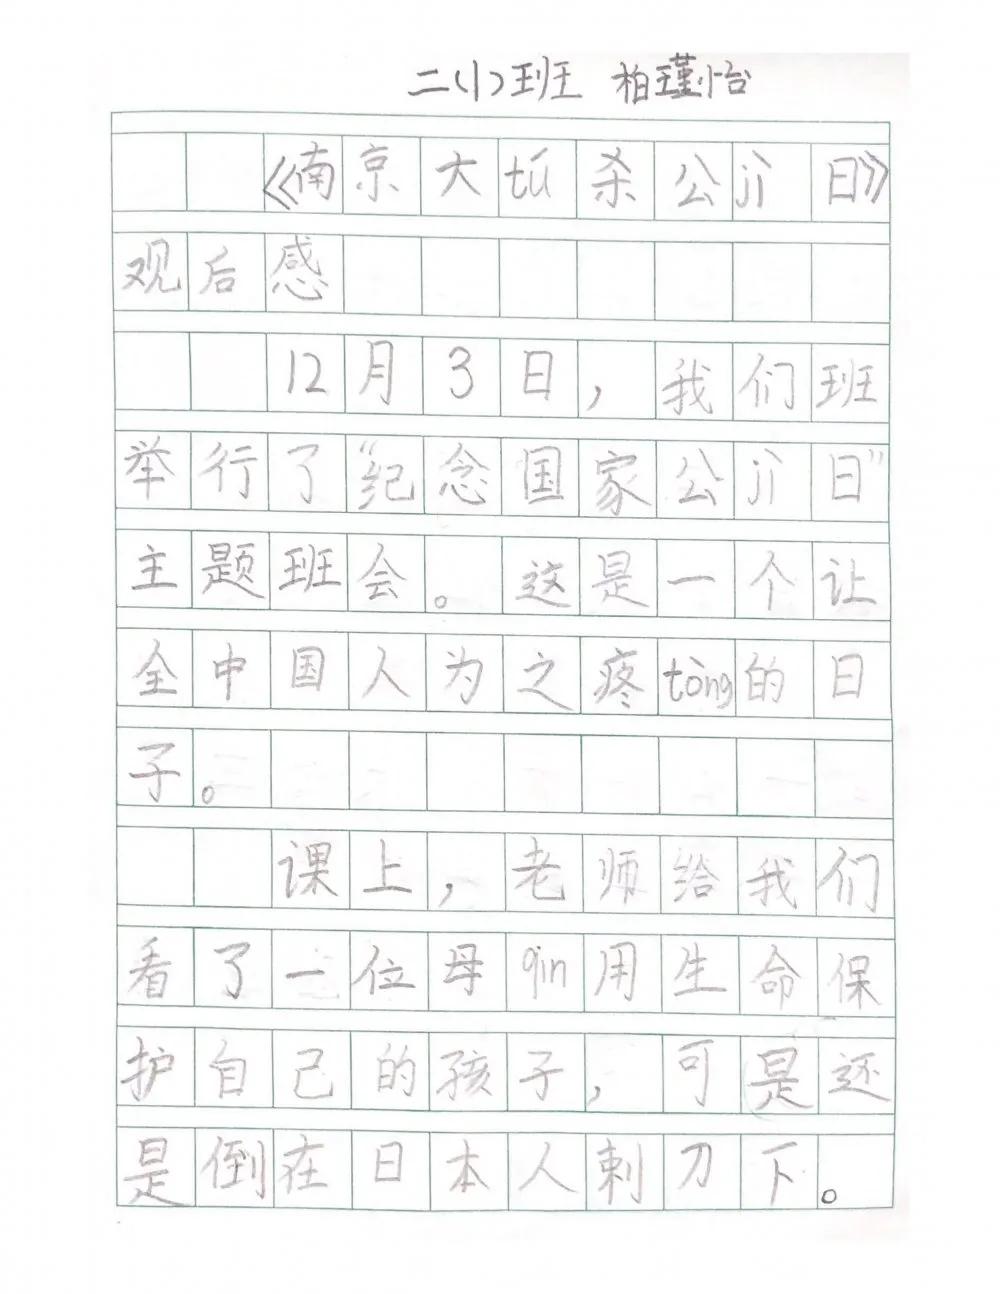 二(1)班 柏瑾怡
《南京大tú杀公jì日》
观后感
12月3日，我们班
举行了“纪念国家公jì日”
主题班会。这是一个让
全中国人为之疼tòng的日
子。
课上，老师给我们
看了一位母qin用生命保
护自己的孩子，可是还
是倒在日本人刺刀下。